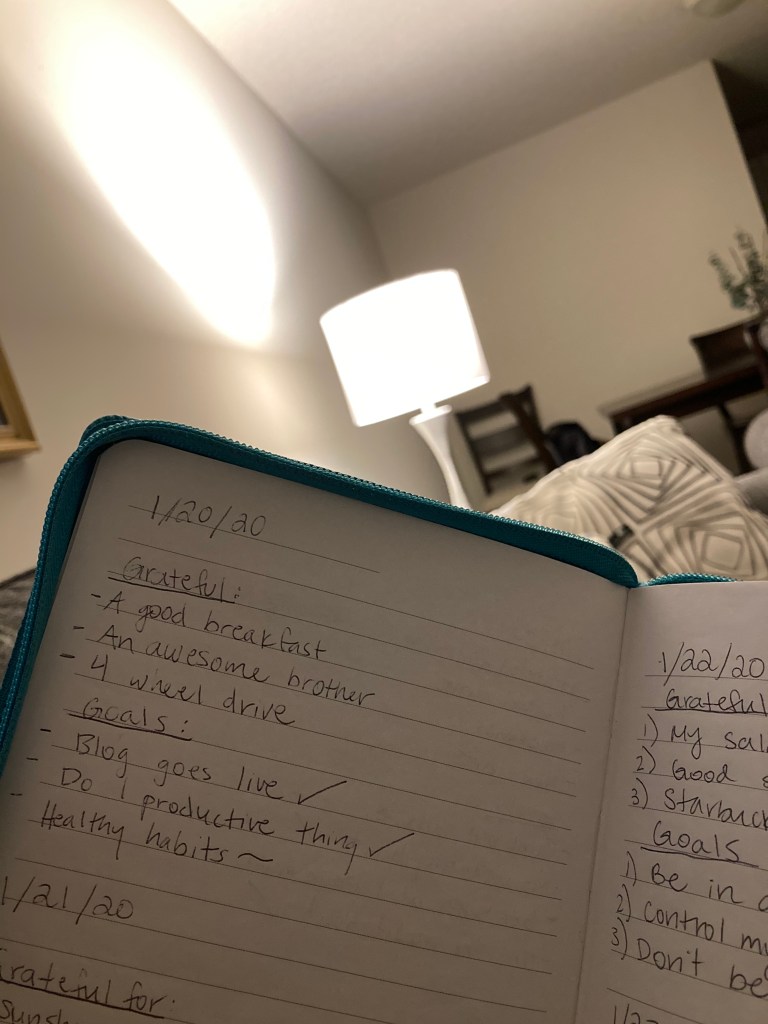 1/20/20
Grateful:
- A good breakfast
- An awesome brother
- 4 wheel drive
Goals:
- Blog goes live ✓
- Do 1 productive thing ✓
- Healthy habits ~
1/21/20
Grateful for:
1/22/20
Grateful
1) My
2) Good
3)
Goals
1) Be in
2) Control
3) Don't be